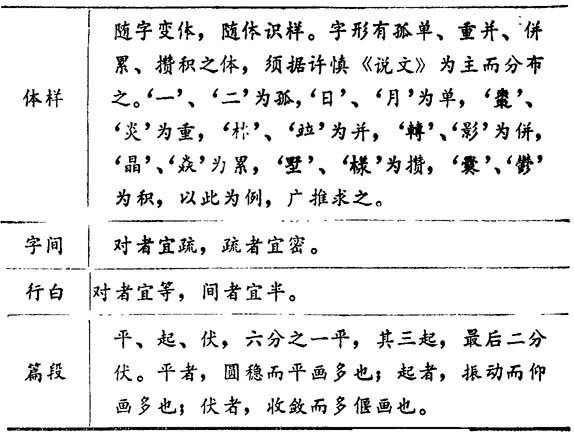 随字变体，随体识样。字形有孤单、重并、併
累、攒积之体，须据许慎《说文》为主而分布
体样
之。‘一’、‘二’为孤，‘日’、‘月’为单，‘棗’、
‘炎’为重，‘林’、‘竝’为并，‘轉’、‘影’为併，
‘晶’、‘焱’为累，‘墅’、‘樣’为攒，‘爨’、‘鬱’
为积，以此为例，广推求之。
字间 对者宜疏，疏者宜密。
行白 对者宜等，间者宜半。
平、起、伏，六分之一平，其三起，最后二分
篇段 伏。平者，圆稳而平画多也；起者，振动而仰
画多也；伏者，收敛而多偃画也。